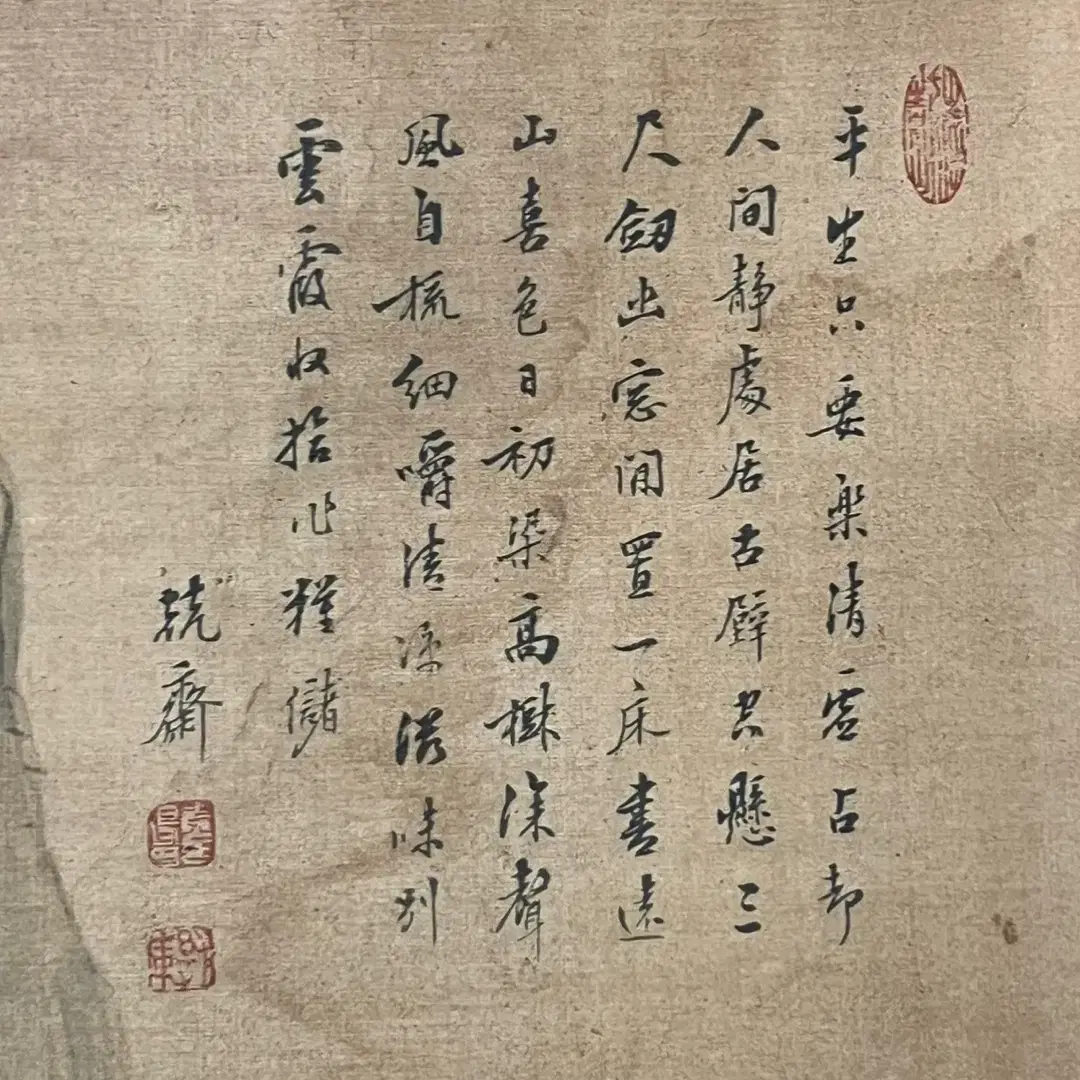 平生只要樂清虛占却
人間靜處居古壁空懸三
尺劔幽窓閒置一床書遠
山喜色日初染高樹深聲
風自梳細嚼清涼滋味別
雲霞收拾作糧儲
兢齋